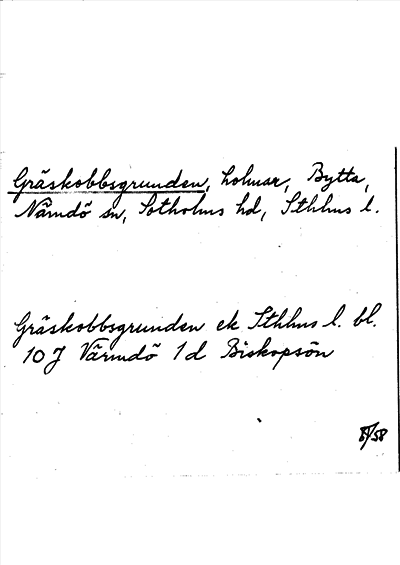 Gräskobbsgrunden, holmar, Bytta,
Nämdö sn, Sotholms hd, Sthlms l.
Gräskobbsgrunden ek Sthlms l. bl.
10 J Värmdö 1 d Biskopsön
/58